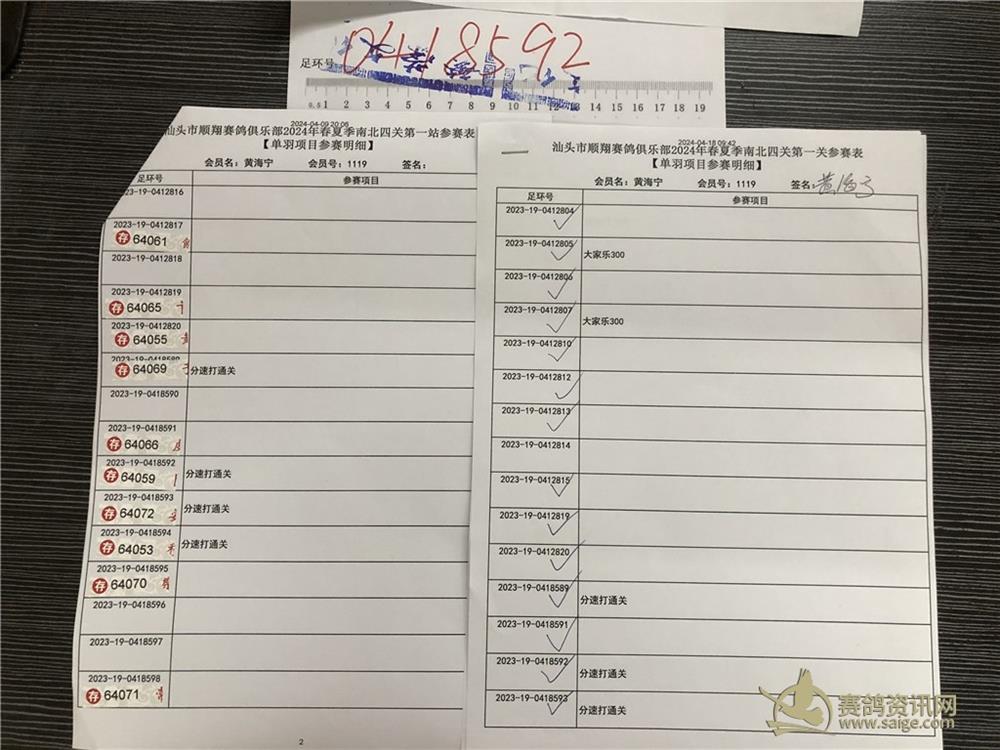 0418592
足环号
0.5 1 2 3 4 5 6 7 8 9 10 11 12 13 14 15 16 17 18 19
2024-04-09 20:06
汕头市顺翔赛鸽俱乐部2024年春夏季南北四关第一站参赛表
【单羽项目参赛明细】
会员名：黄海宁 会员号：1119 签名：
足环号 参赛项目
23-19-0412816
2023-19-0412817
存 64061
2023-19-0412818
2023-19-0412819
存 64065
2023-19-0412820
存 64055
2023-19-0418589
存 64069 分速打通关
2023-19-0418590
2023-19-0418591
存 64066
2023-19-0418592
存 64059 分速打通关
2023-19-0418593
存 64072 分速打通关
2023-19-0418594
存 64053 分速打通关
2023-19-0418595
存 64070
2023-19-0418596
2023-19-0418597
2023-19-0418598
存 64071
2
2024-04-18 09:42
汕头市顺翔赛鸽俱乐部2024年春夏季南北四关第一关参赛表
【单羽项目参赛明细】
会员名：黄海宁 会员号：1119 签名：黄海宁
足环号 参赛项目
2023-19-0412804
2023-19-0412805 大家乐300
2023-19-0412806
2023-19-0412807 大家乐300
2023-19-0412810
2023-19-0412812
2023-19-0412813
2023-19-0412814
2023-19-0412815
2023-19-0412819
2023-19-0412820
2023-19-0418589 分速打通关
2023-19-0418591
2023-19-0418592 分速打通关
2023-19-0418593 分速打通关
赛鸽资讯网
www.saige.com